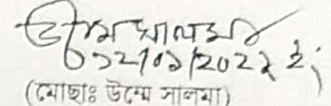 উম্মে সালমা
১২/০১/২০২২ ইং
(মোছাঃ উম্মে সালমা)